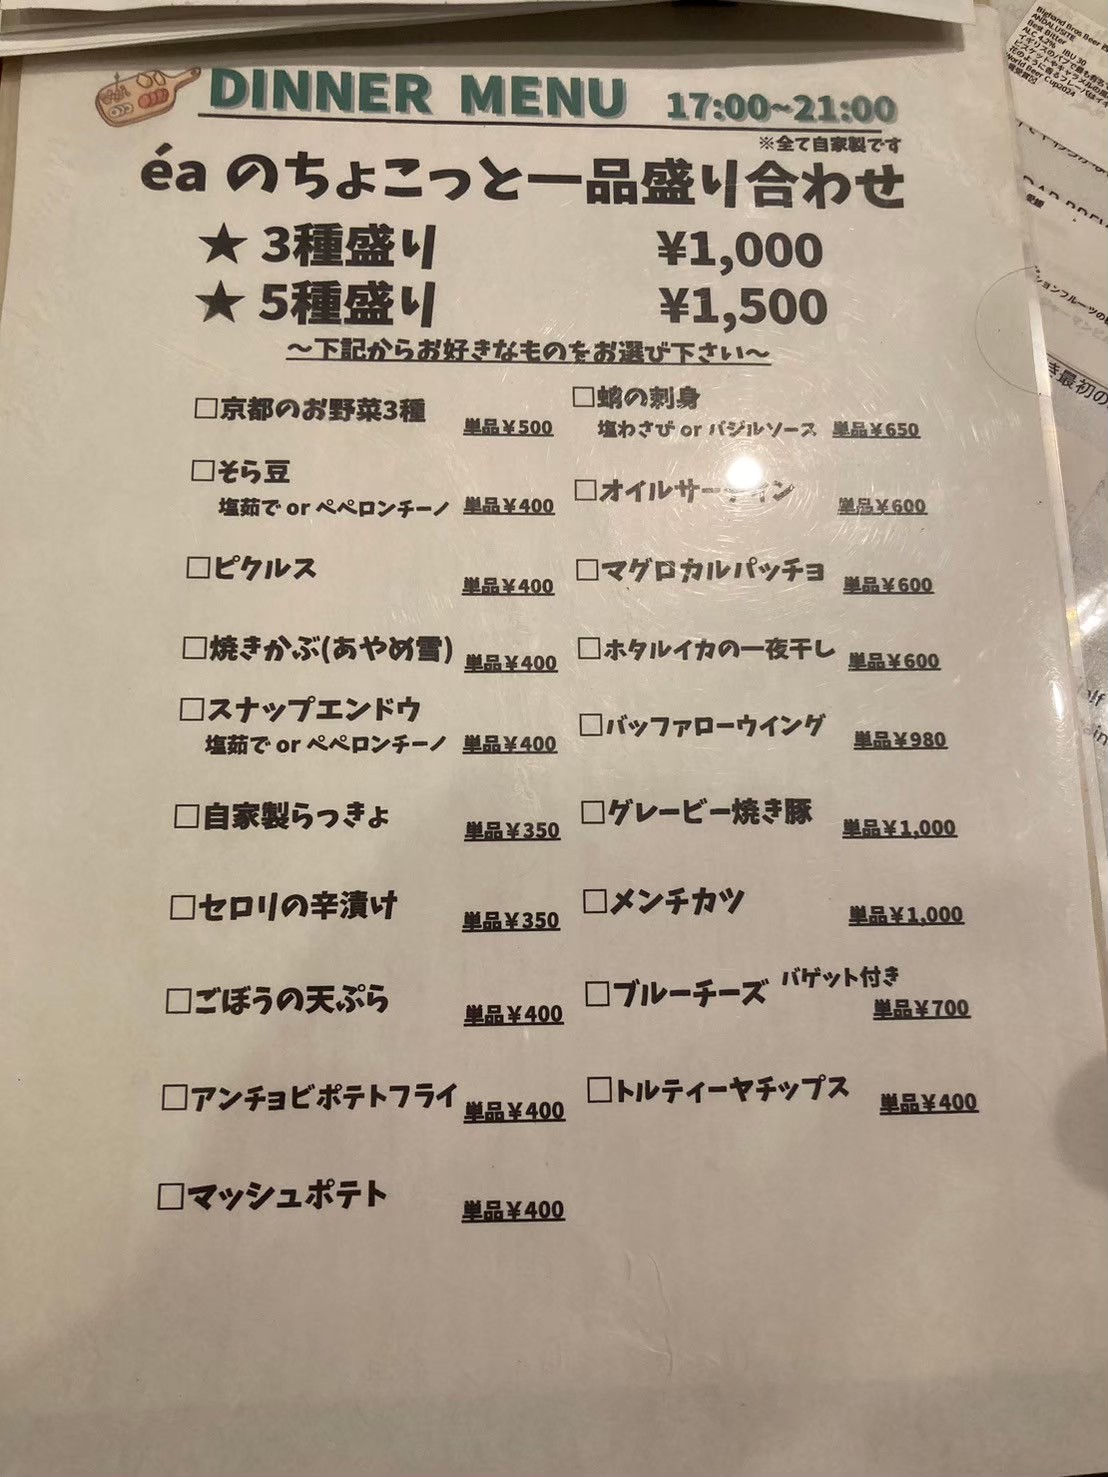 DINNER MENU 17:00~21:00
※全て自家製です
éa のちょこっと一品盛り合わせ
★ 3種盛り ¥1,000
★ 5種盛り ¥1,500
～下記からお好きなものをお選び下さい～
□京都のお野菜3種 単品¥500
□そら豆
塩茹で or ペペロンチーノ 単品¥400
□ピクルス 単品¥400
□焼きかぶ(あやめ雪) 単品¥400
□スナップエンドウ
塩茹で or ペペロンチーノ 単品¥400
□自家製らっきょ 単品¥350
□セロリの辛漬け 単品¥350
□ごぼうの天ぷら 単品¥400
□アンチョビポテトフライ 単品¥400
□マッシュポテト 単品¥400
□蛸の刺身
塩わさび or バジルソース 単品¥650
□オイルサーディン 単品¥600
□マグロカルパッチョ 単品¥600
□ホタルイカの一夜干し 単品¥600
□バッファローウイング 単品¥980
□グレービー焼き豚 単品¥1,000
□メンチカツ 単品¥1,000
□ブルーチーズ バゲット付き
単品¥700
□トルティーヤチップス 単品¥400
Bighand Bros Beer
ANDALUSITE
Best Bitter
ALC 4.2% IBU 30
World Beer Cup2024
愛媛
ションフルーツの
き最初の